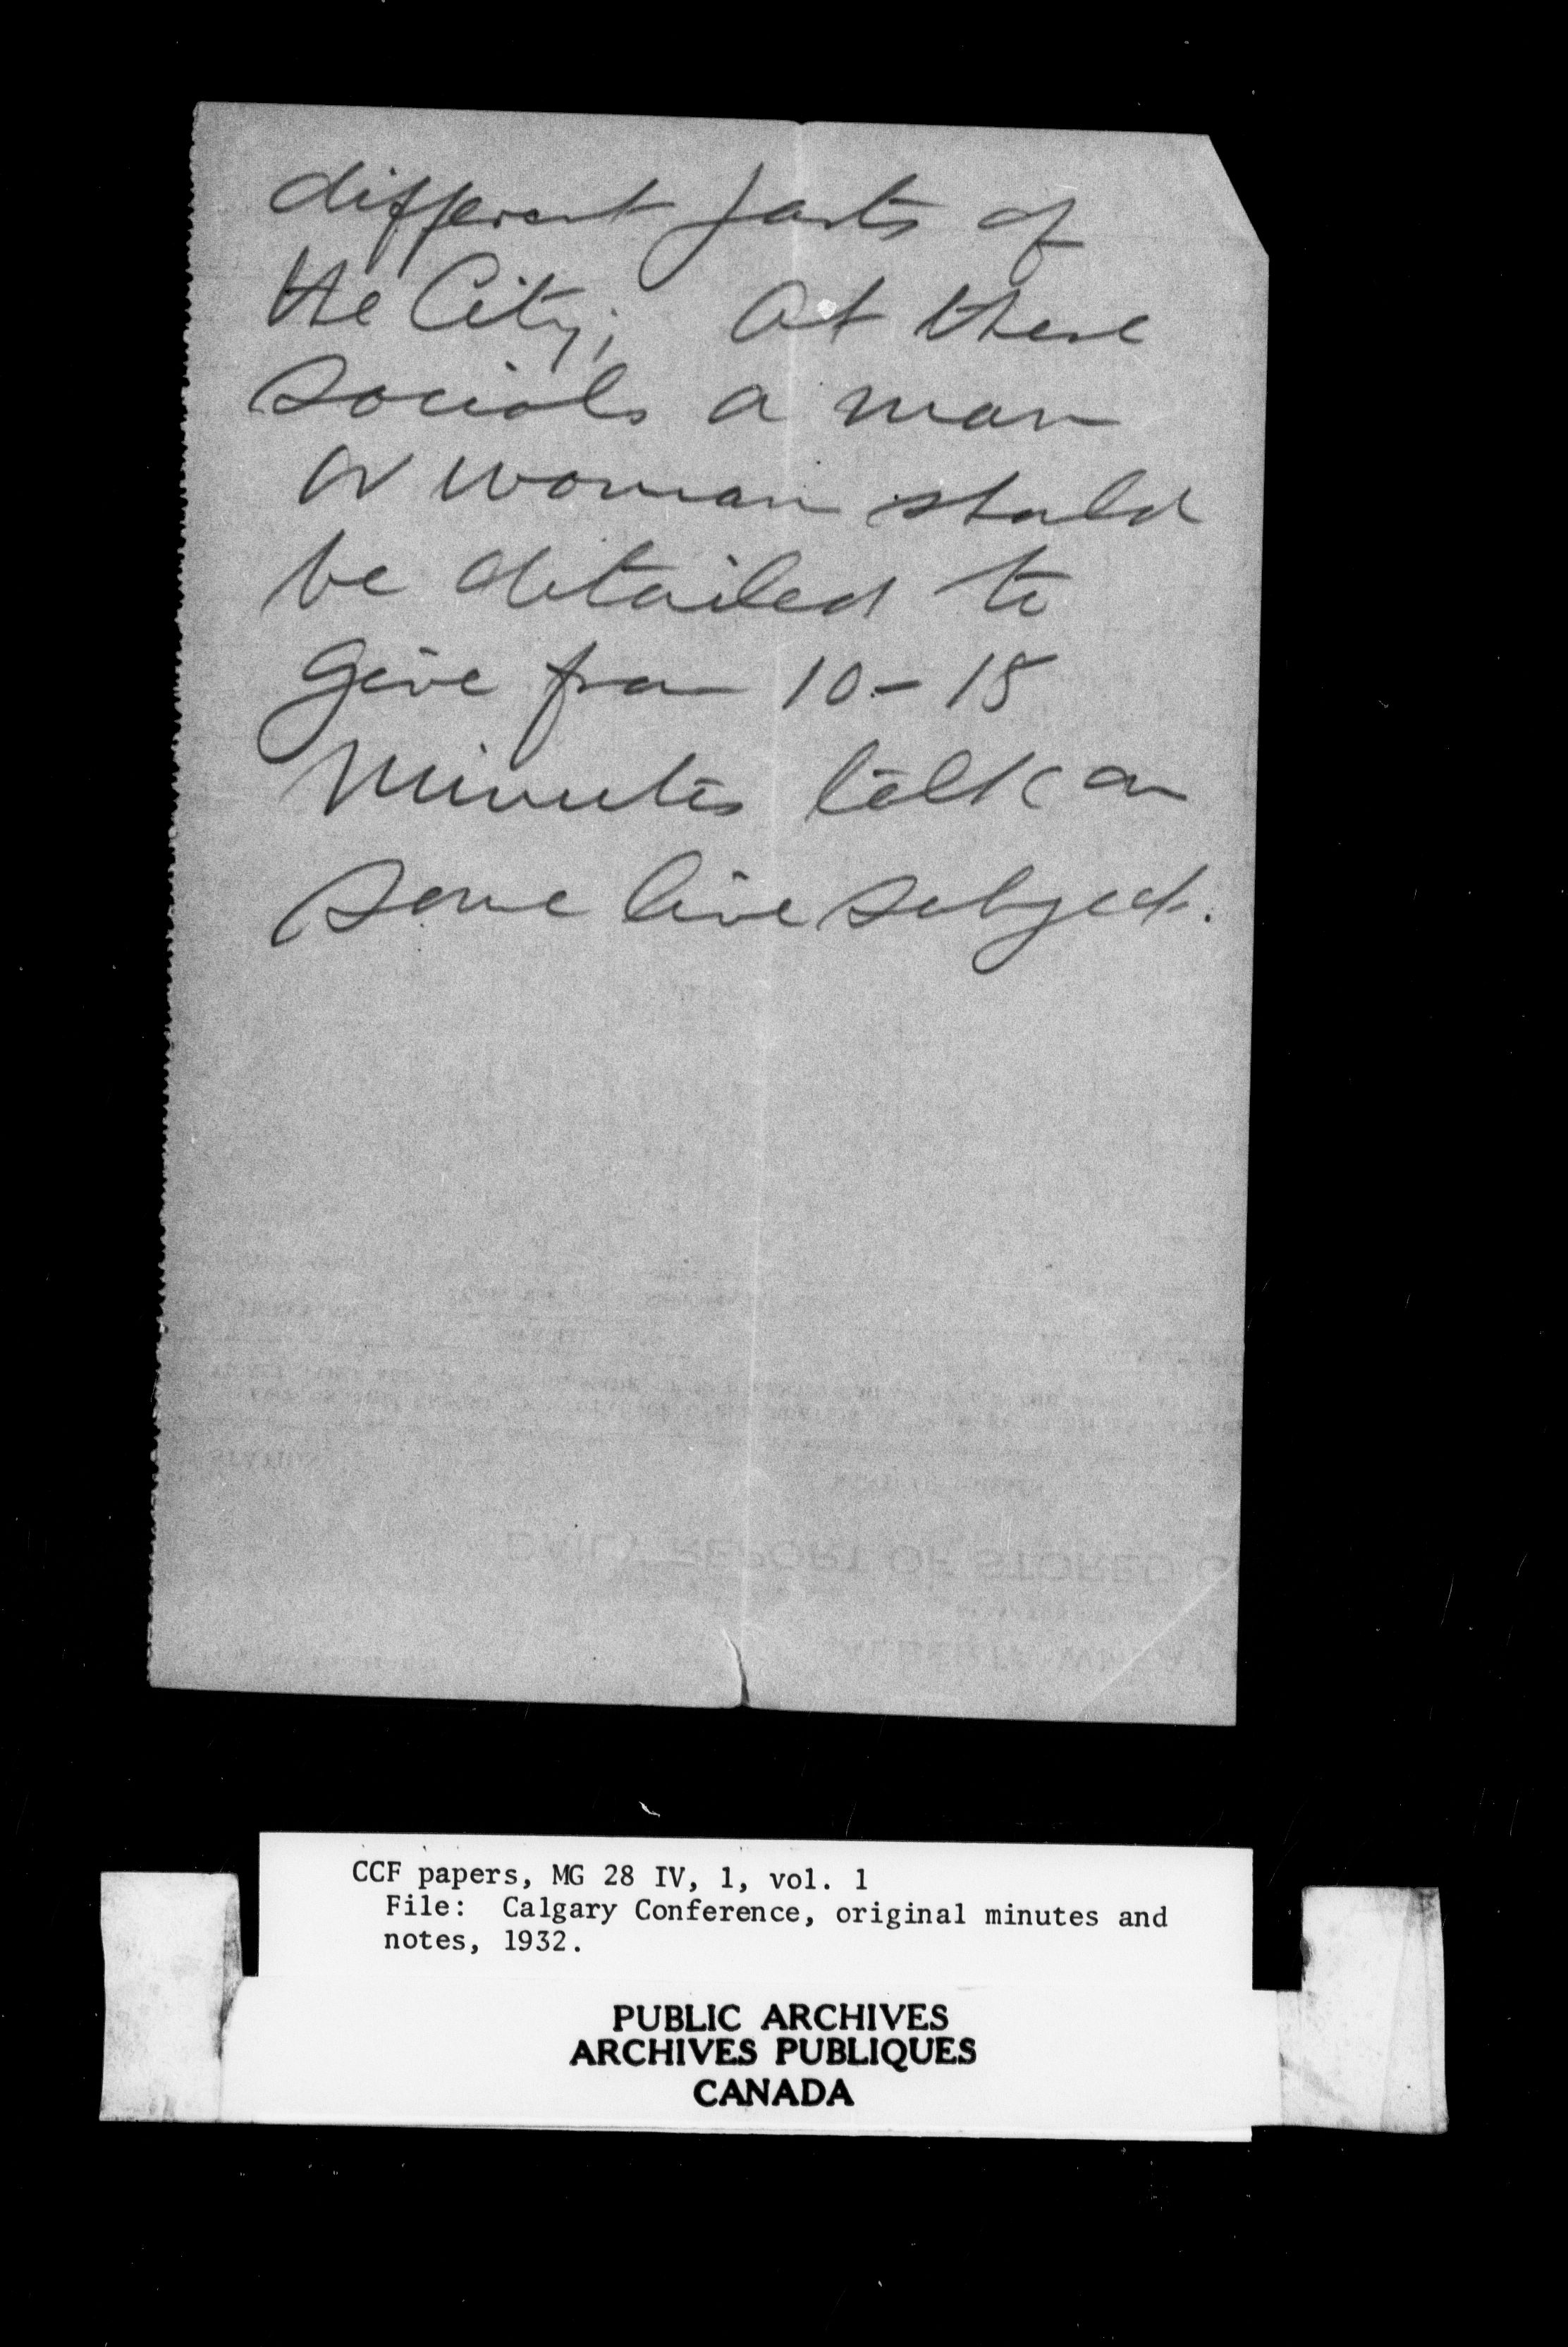 different parts of
the City; At these
socials a man
or woman should
be detailed to
give from 10 - 15
minutes talk on
some live subject.
DAILY REPORT OF STORED G
ALBERTA WHEAT
CCF papers, MG 28 IV, 1, vol. 1
File: Calgary Conference, original minutes and
notes, 1932.
PUBLIC ARCHIVES
ARCHIVES PUBLIQUES
CANADA